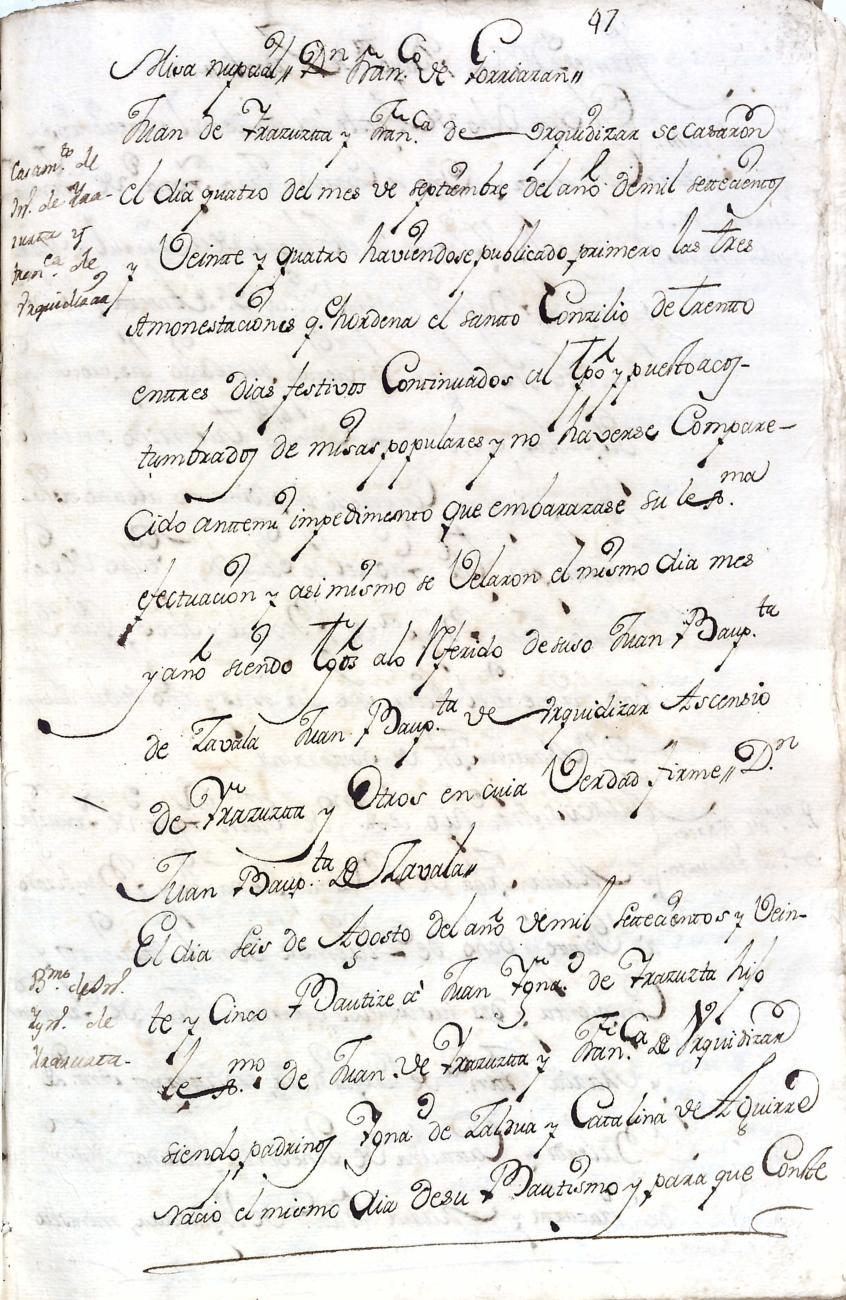 47
Misa nupcial// Dn Fran.co de Gorriaran//
Juan de Yrazuzta y Fran.ca de Urquidizar se casaron
el dia quatro del mes de septiembre del año de mil settecientos
y Veinte y quatro haviendose publicado primero las tres
Amonestaciones q.e hordena el santto Conzilio de trentto
enttres dias festivos Continuados al tpo y puesto acos-
tumbrados de misas populares y no haverse Compare-
Cido impedimento que embarazase su lex.ma
efectuacion y asimismo se Velaron el mismo dia mes
y año siendo tgos alo Referido desuso Juan Baup.ta
de Zavala Juan Baup.ta de Urquidizar Ascensio
de Yrazuzta y Otros en cuia Verdad firme// D.n
Juan Baup.ta de Zavala//
Casam.to de
Jn. de Yra-
zuzta y
Fran.ca de
Urquidizar
El dia seis de Agosto del año de mil settecientos y Vein-
te y Cinco Bautize a Juan Ygna.o de Yrazuzta hijo
lex.mo de Juan de Yrazuzta y Fran.ca de Urquidizar
siendo padrinos Ygna.o de Zaldua y Catalina de Aguirre
nacio el mismo dia desu Bautismo y para que Conste
B.mo de Jn.
Ygn.o de
Yrazuzta-